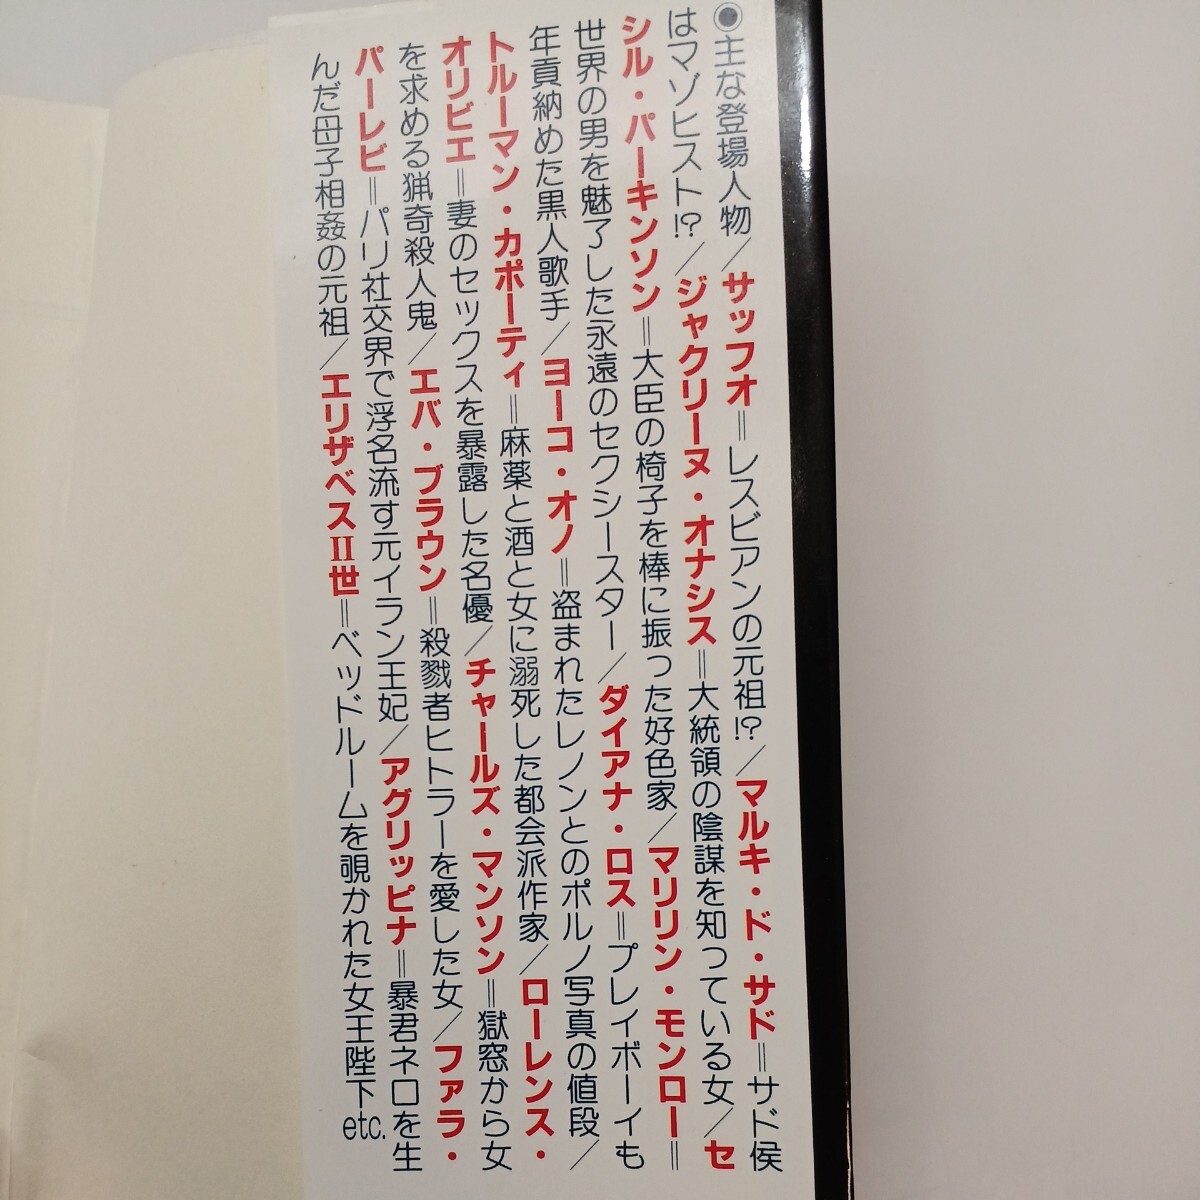 ◉主な登場人物／サッフォ＝レスビアンの元祖!?／マルキ・ド・サド＝サド侯
はマゾヒスト!?／ジャクリーヌ・オナシス＝大統領の陰謀を知っている女／セ
シル・パーキンソン＝大臣の椅子を棒に振った好色家／マリリン・モンロー＝
世界の男を魅了した永遠のセクシースター／ダイアナ・ロス＝プレイボーイも
年貢納めた黒人歌手／ヨーコ・オノ＝盗まれたレノンとのポルノ写真の値段／
トルーマン・カポーティ＝麻薬と酒と女に溺死した都会派作家／ローレンス・
オリビエ＝妻のセックスを暴露した名優／チャールズ・マンソン＝獄窓から女
を求める猟奇殺人鬼／エバ・ブラウン＝殺戮者ヒトラーを愛した女／ファラ・
パーレビ＝パリ社交界で浮名流す元イラン王妃／アグリッピナ＝暴君ネロを生
んだ母子相姦の元祖／エリザベスⅡ世＝ベッドルームを覗かれた女王陛下etc.